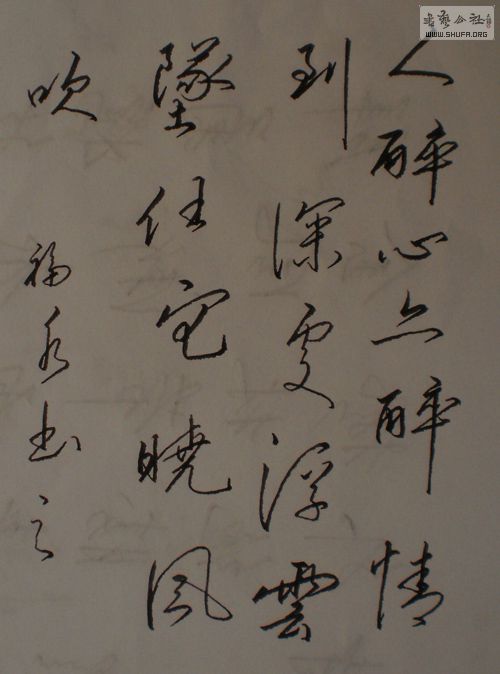 書藝公社
WWW.SHUFA.ORG
人醉心亦醉情
到深處浮雲
墜任它曉風
吹
福 书之